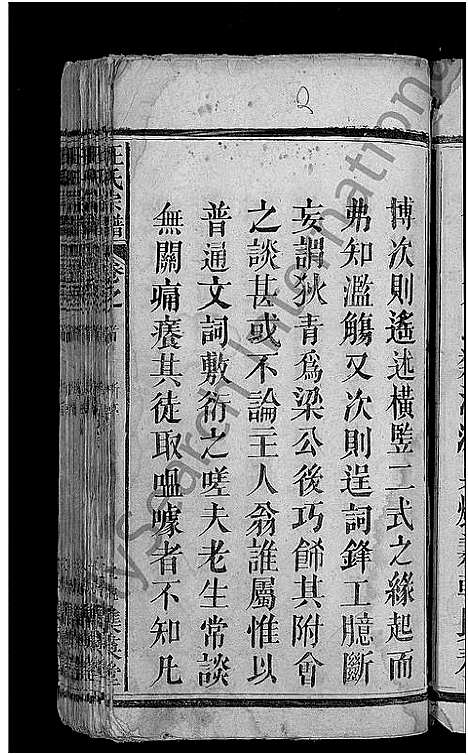 博次則遙述橫竪二式之緣起而
弗知濫觴又次則逞詞鋒工臆斷
妄謂狄青爲梁公後巧餙其附會
之談甚或不論主人翁誰屬惟以
普通文詞敷衍之嗟夫老生常談
無關痛癢其徒取嗢噱者不知凡
汪氏宗譜
卷之
MySearch International